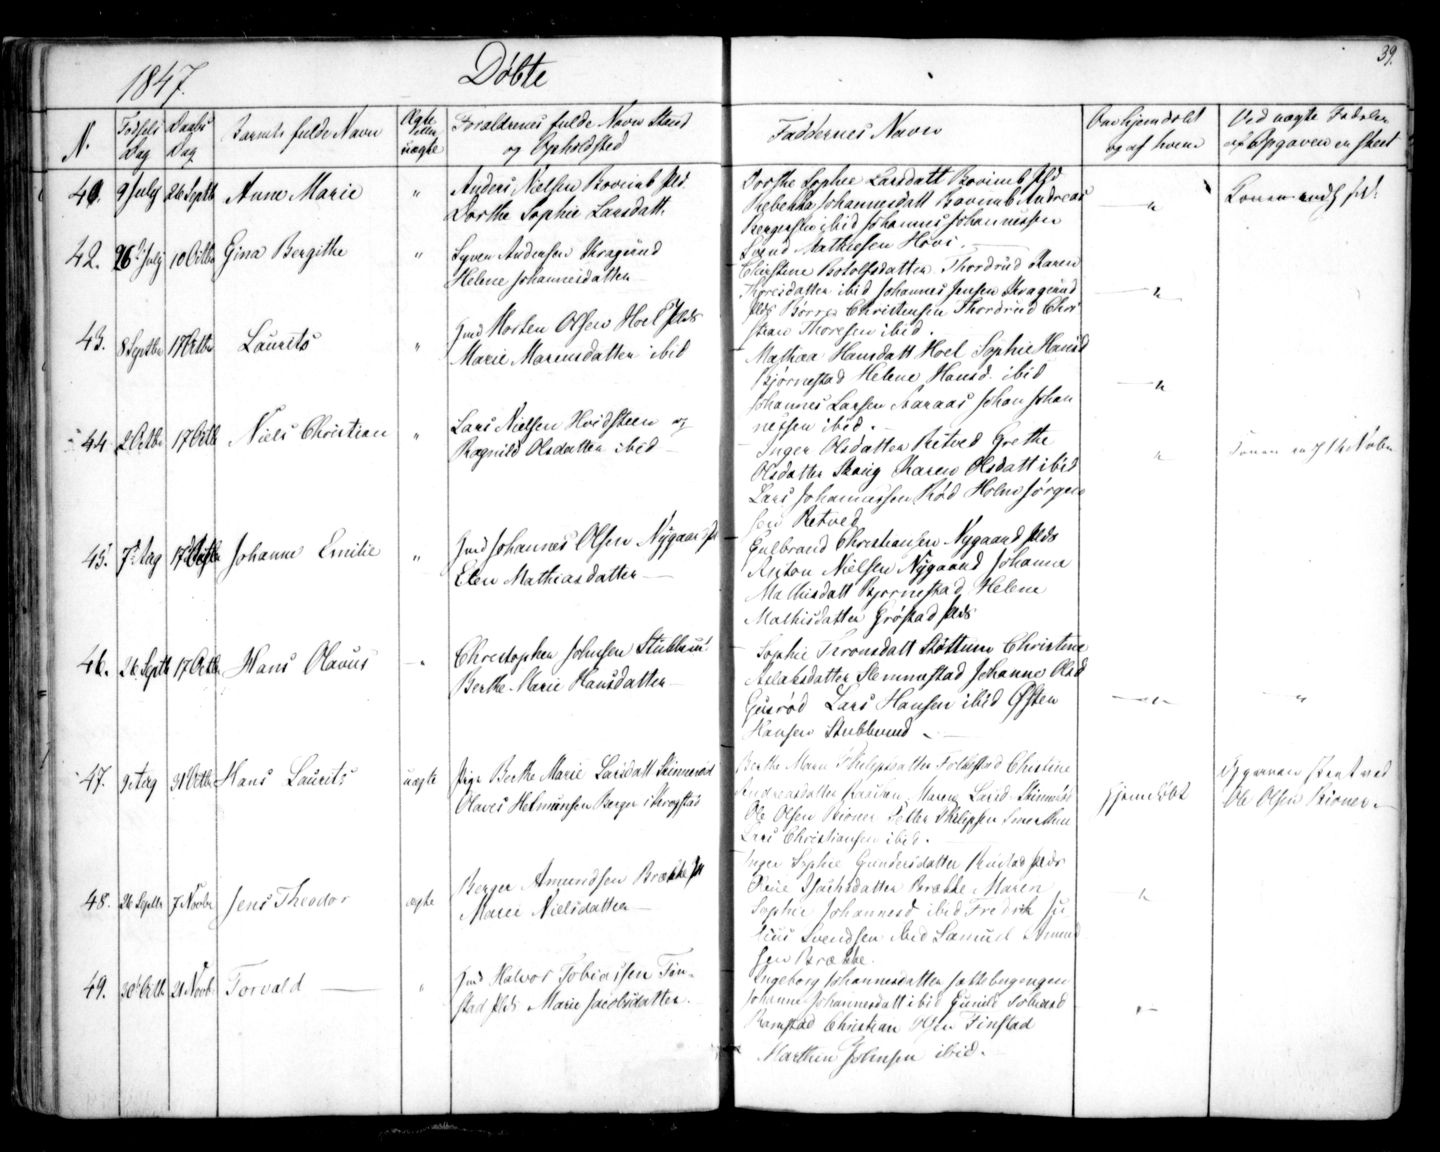 39.
1847.
Døbte
N.
Fødsels Dag
Daabs Dag
Barnets fulde Navn
Ægte eller uægte
Forældrenes fulde Navn Stand
og Opholdsted
Faddernes Navn
Om hjemdøbt
og af hvem
Ved uægte Fødsler
af Opgaven en skeet
41. 9 July 26 Septb Anne Marie " Anders Nielsen Bovimb Plds.
Dorthe Sophie Larsdatt.
Dorthe Sophie Larsdatt Bovimb Plds
Rebekka Johannesdatt Bovimb Andreas
Bergersen ibid Johannes Johannessen
Svend Mathiesen Hovi.
42. 26 July 10 Octbr Gina Bergithe " Syver Andersen Kragsund
Helene Johannesdatter
Christine Botolfsdatter Thordrud Karen
Thoresdatter ibid Johannes Jensen Kragsund
Plds Børre Christensen Thordrud Chri
stian Thoresen ibid.
43. 8 Septbr 17 Octbr Laurits " Imd Morten Olsen Hoel Plds
Marie Mariusdatter ibid
Mathea Hansdatt Hoel Sophie Hansd
Bjørnestad Helene Hansd. ibid
Johannes Larsen Aaraas Johan Johan
nessen ibid.
44 2 Octbr 17 Octb Niels Christian " Lars Nielsen Hvidsteen og
Ragnild Olsdatter ibid
Inger Olsdatter Retved Grethe
Olsdatter Skoug Karen Olsdatt ibid
Lars Johannessen Rød Holm Jørgen
sen Retved
45. 7 Aug 17 Octbr Johanne Emilie " Imd Johannes Olsen Nygaard Pl
Elen Mathiasdatter
Gulbrand Christiansen Nygaard Plds
Anton Nielsen Nygaard Johanne
Mathisdatt Bjørnestad Helene
Mathisdatter Grøstad Plds
46. 26 Septb 17 Octbr Hans Olavus Christopher Johnsen Stubberud
Berthe Marie Hansdatter
Sophie Aronsdatt Støttum Christine
Aslaksdatter Slemmestad Johanne Olsd
Gusrød Lars Hansen ibid Østen
Hansen Stubberud
47. 9 Aug 31 Octbr Hans Laurits uægte Pige Berthe Marie Larsdatt Skinnerød
Olaves Helmunsen Berger i Krogstad
Berthe Marie Philipsdatter Foldstad Christine
Andreasdatter Maren Larsd Skinnerød
Ole Olsen Bioner Petter Philipsen
Lars Christiansen ibid.
hjemdøbt
Opgaven skeet ved
Ole Olsen Bioner
48. 26 Septb 7 Novbr Jens Theodor ægte Berger Amundsen Brække Pl
Maren Nielsdatter
Inger Sophie Gundersdatter Plds
Brække Maren
Sophie Johannesd ibid Fredrik Ju
lius Svendsen ibid Samuel Amund
sen Brække.
49. 30 Octb 21 Novbr Torvald " Imd Halvor Tobiassen Fin-
stad Plds Marie Jacobsdatter.
Ingeborg Johannesdatter Sættebergengen
Johanne Johannesdatt ibid Gunild Tobiasd
Ramstad Christian Olsen Finstad
Marthin Johnsen ibid.